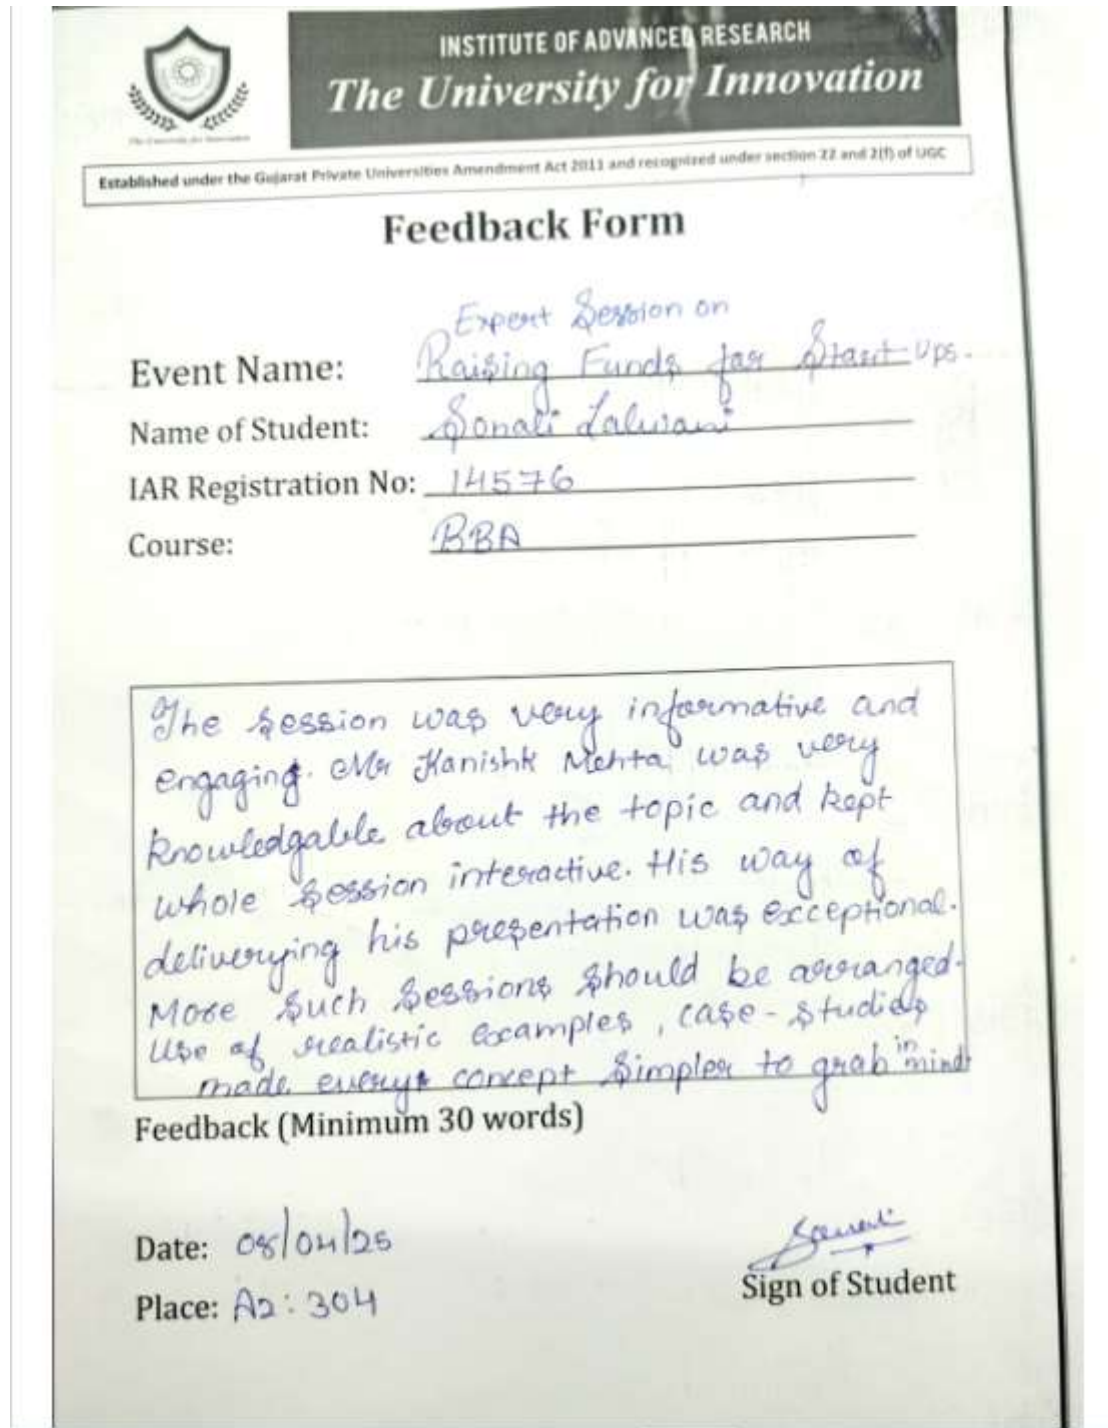 INSTITUTE OF ADVANCED RESEARCH
The University for Innovation
The University for Innovation
Established under the Gujarat Private Universities Amendment Act 2011 and recognized under section 22 and 2(f) of UGC
Feedback Form
Expert Session on
Event Name: Raising Funds for Start-Ups.
Name of Student: Sonali Lalwani
IAR Registration No: 14576
Course: BBA
The session was very informative and
engaging. Mr Kanishk Mehta was very
knowledgable about the topic and kept
whole session interactive. His way of
deliverying his presentation was exceptional.
More such sessions should be arranged.
Use of realistic examples, case-studies
made every concept simpler to grab in mind
Feedback (Minimum 30 words)
Date: 08/04/25
Place: A2: 304
Sonali
Sign of Student